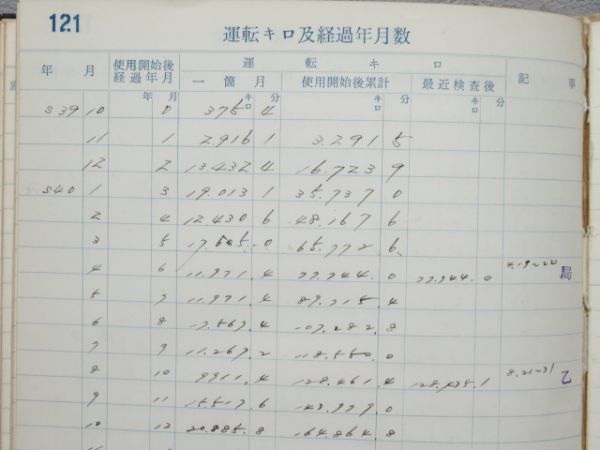 121
運転キロ及経過年月数
年 月 使用開始後経過年月 運転キロ 記事
一箇月 使用開始後累計 最近検査後
年 月 キロ 分 キロ 分 キロ 分
S39 10 0 375 4
11 1 2916 1 3.291 5
12 2 13.432 4 16.723 9
S40 1 3 19.013 1 35.737 0
2 4 12.430 6 48.167 6
3 5 17.605.0 65.772 6
4 6 11.971.4 77.744.0 77.744.0 4.19~22 局
5 7 11.971.4 89.715.4
6 8 17.567.4 107.282.8
7 9 11.267.2 118.550.0
8 10 9911.4 128.461.4 8.21~31 乙
9 11 15.517.6 143.979.0
10 12 20.885.8 164.864.8